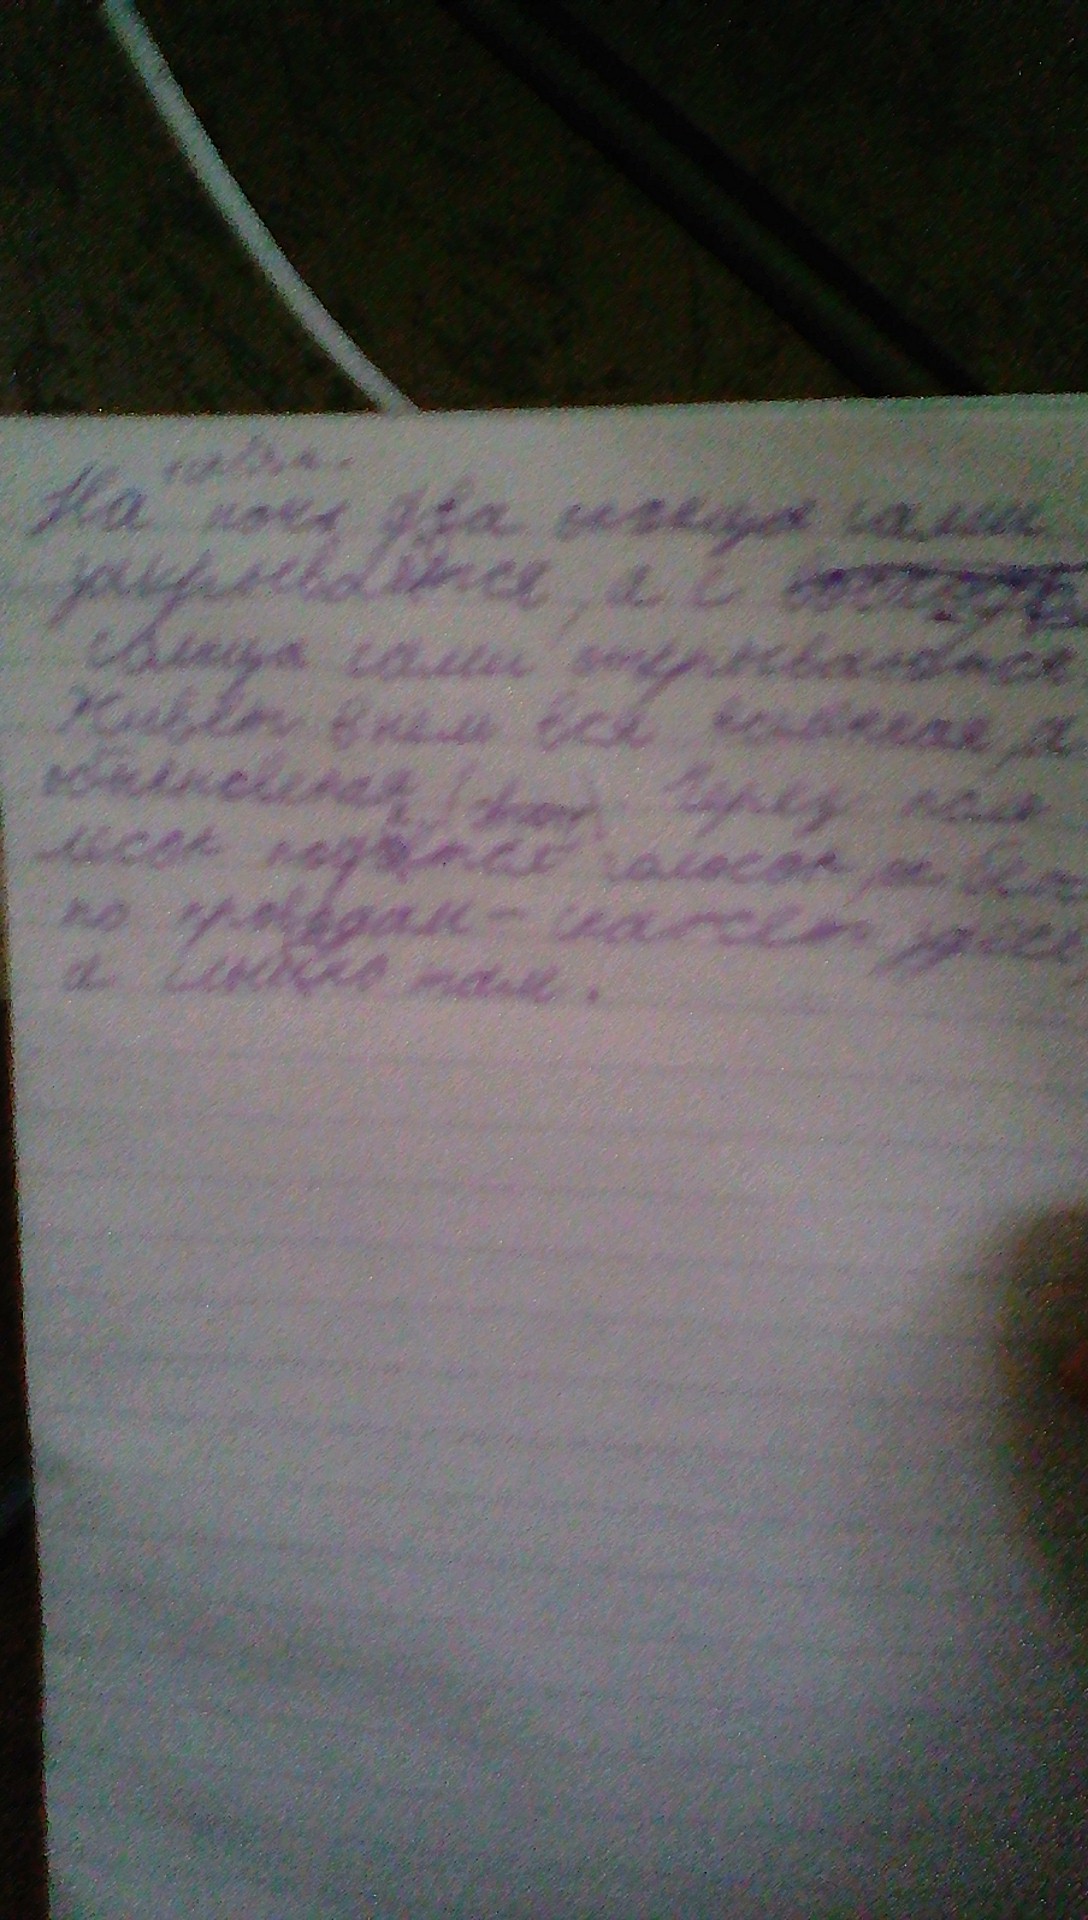 На ночь два оконца сами
закрываются, а с
солнца сами открываются
Живёт в нем вся вселенная, а
обыкновенная. Через поле
лесок подаётся голосок, и бежит
по проводам - скажешь здесь,
а слышно там.